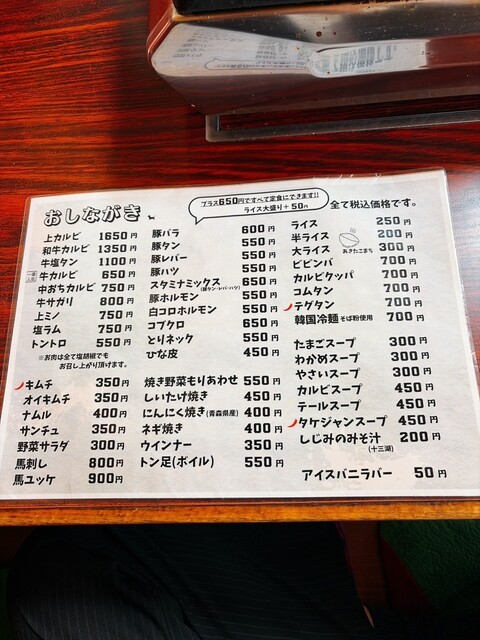 おしながき
プラス650円ですべて定食にできます!!
ライス大盛り+50円
全て税込価格です。
上カルビ 1650円
和牛カルビ 1350円
牛塩タン 1100円
牛カルビ 650円
中おちカルビ 750円
牛サガリ 800円
上ミノ 750円
塩ラム 750円
トントロ 550円
※お肉は全て塩胡椒でも
お召し上がり頂けます。
豚バラ 600円
豚タン 550円
豚レバー 550円
豚ハツ 550円
スタミナミックス 650円
(豚タン・レバ・ハツ)
豚ホルモン 550円
白コロホルモン 550円
コブクロ 650円
とりネック 550円
ひな皮 450円
ライス 250円
半ライス 200円
大ライス 300円
あきたこまち
ビビンバ 700円
カルビクッパ 700円
コムタン 700円
テグタン 700円
韓国冷麺 そば粉使用 700円
キムチ 350円
オイキムチ 350円
ナムル 400円
サンチュ 350円
野菜サラダ 300円
馬刺し 800円
馬ユッケ 900円
焼き野菜もりあわせ 550円
しいたけ焼き 450円
にんにく焼き(青森県産) 400円
ネギ焼き 400円
ウインナー 350円
トン足(ボイル) 550円
たまごスープ 300円
わかめスープ 300円
やさいスープ 300円
カルビスープ 450円
テールスープ 450円
タケジャンスープ 450円
しじみのみそ汁 200円
(十三湖)
アイスバニラバー 50円